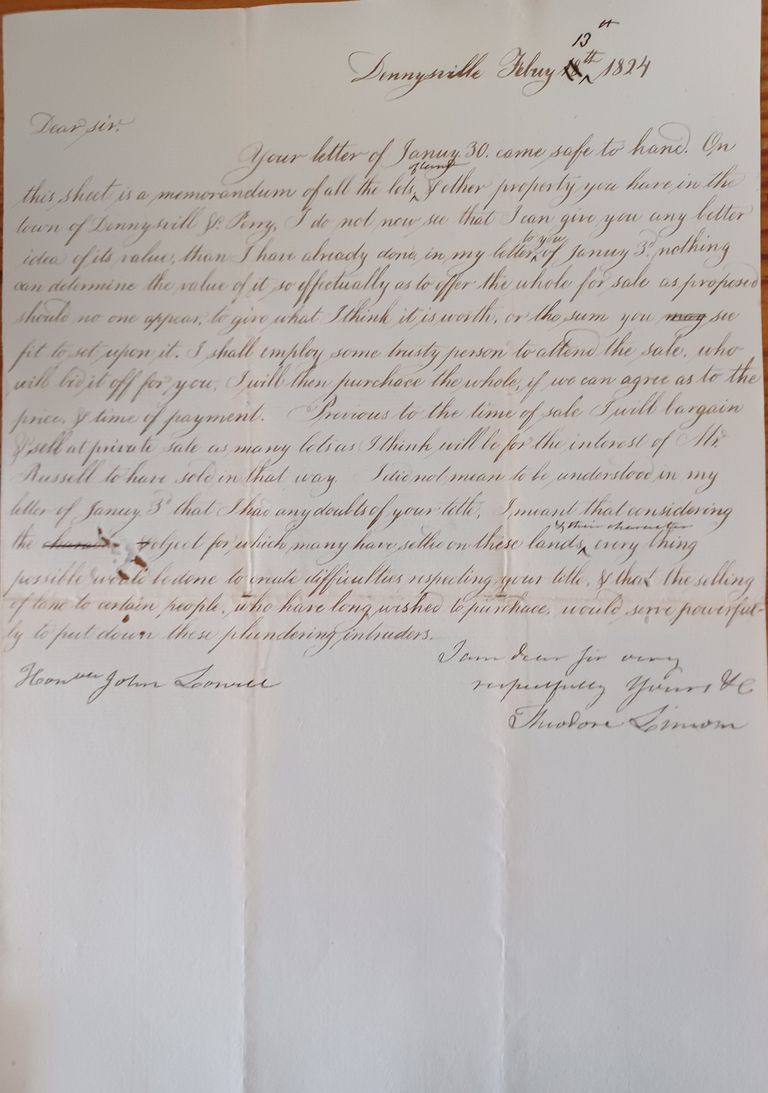 Dennysville Febuy 13th 1824
Dear sir.
Your letter of Januy. 30. came safe to hand. On
this sheet is a memorandum of all the lots, of land & other property you have in the
town of Dennysvill & Perry, I do not now see that I can give you any better
idea of its value, than I have already done, in my letter, to you of Januy 3d. nothing
can determine the value of it, so effectually as to offer the whole for sale as proposed
should no one appear, to give what I think it is worth, or the sum you may see
fit to set upon it. I shall employ some trusty person to attend the sale, who
will bid it off for you, I will then purchace the whole, if we can agree as to the
price, & time of payment. Previous to the time of sale I will bargain
& sell at private sale as many lots as I think will be for the interest of Mr.
Russell to have sold in that way. I did not mean to be understood in my
letter of Januy 3d that I had any doubts of your title, I meant that considering
the object for which many have settled on these lands, & their character every thing
possible would be done to create difficulties respecting your title, & that the selling
of land to certain people, who have long wished to purchace, would serve powerful-
ly to put down these plundering intruders.
I am dear Sir very
respectfully Yours &C
Honble John Lowell
Theodore Lincoln